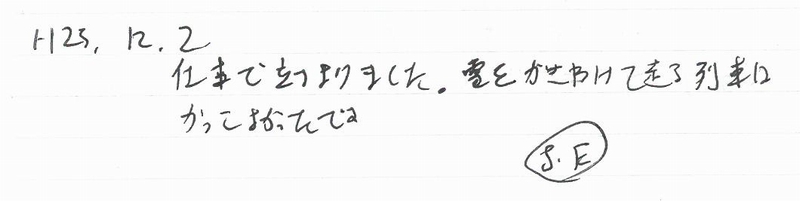 H25. 12. 2
仕事で立つよりました。雪をかきわけて走る列車は
かっこよかったです
J.E